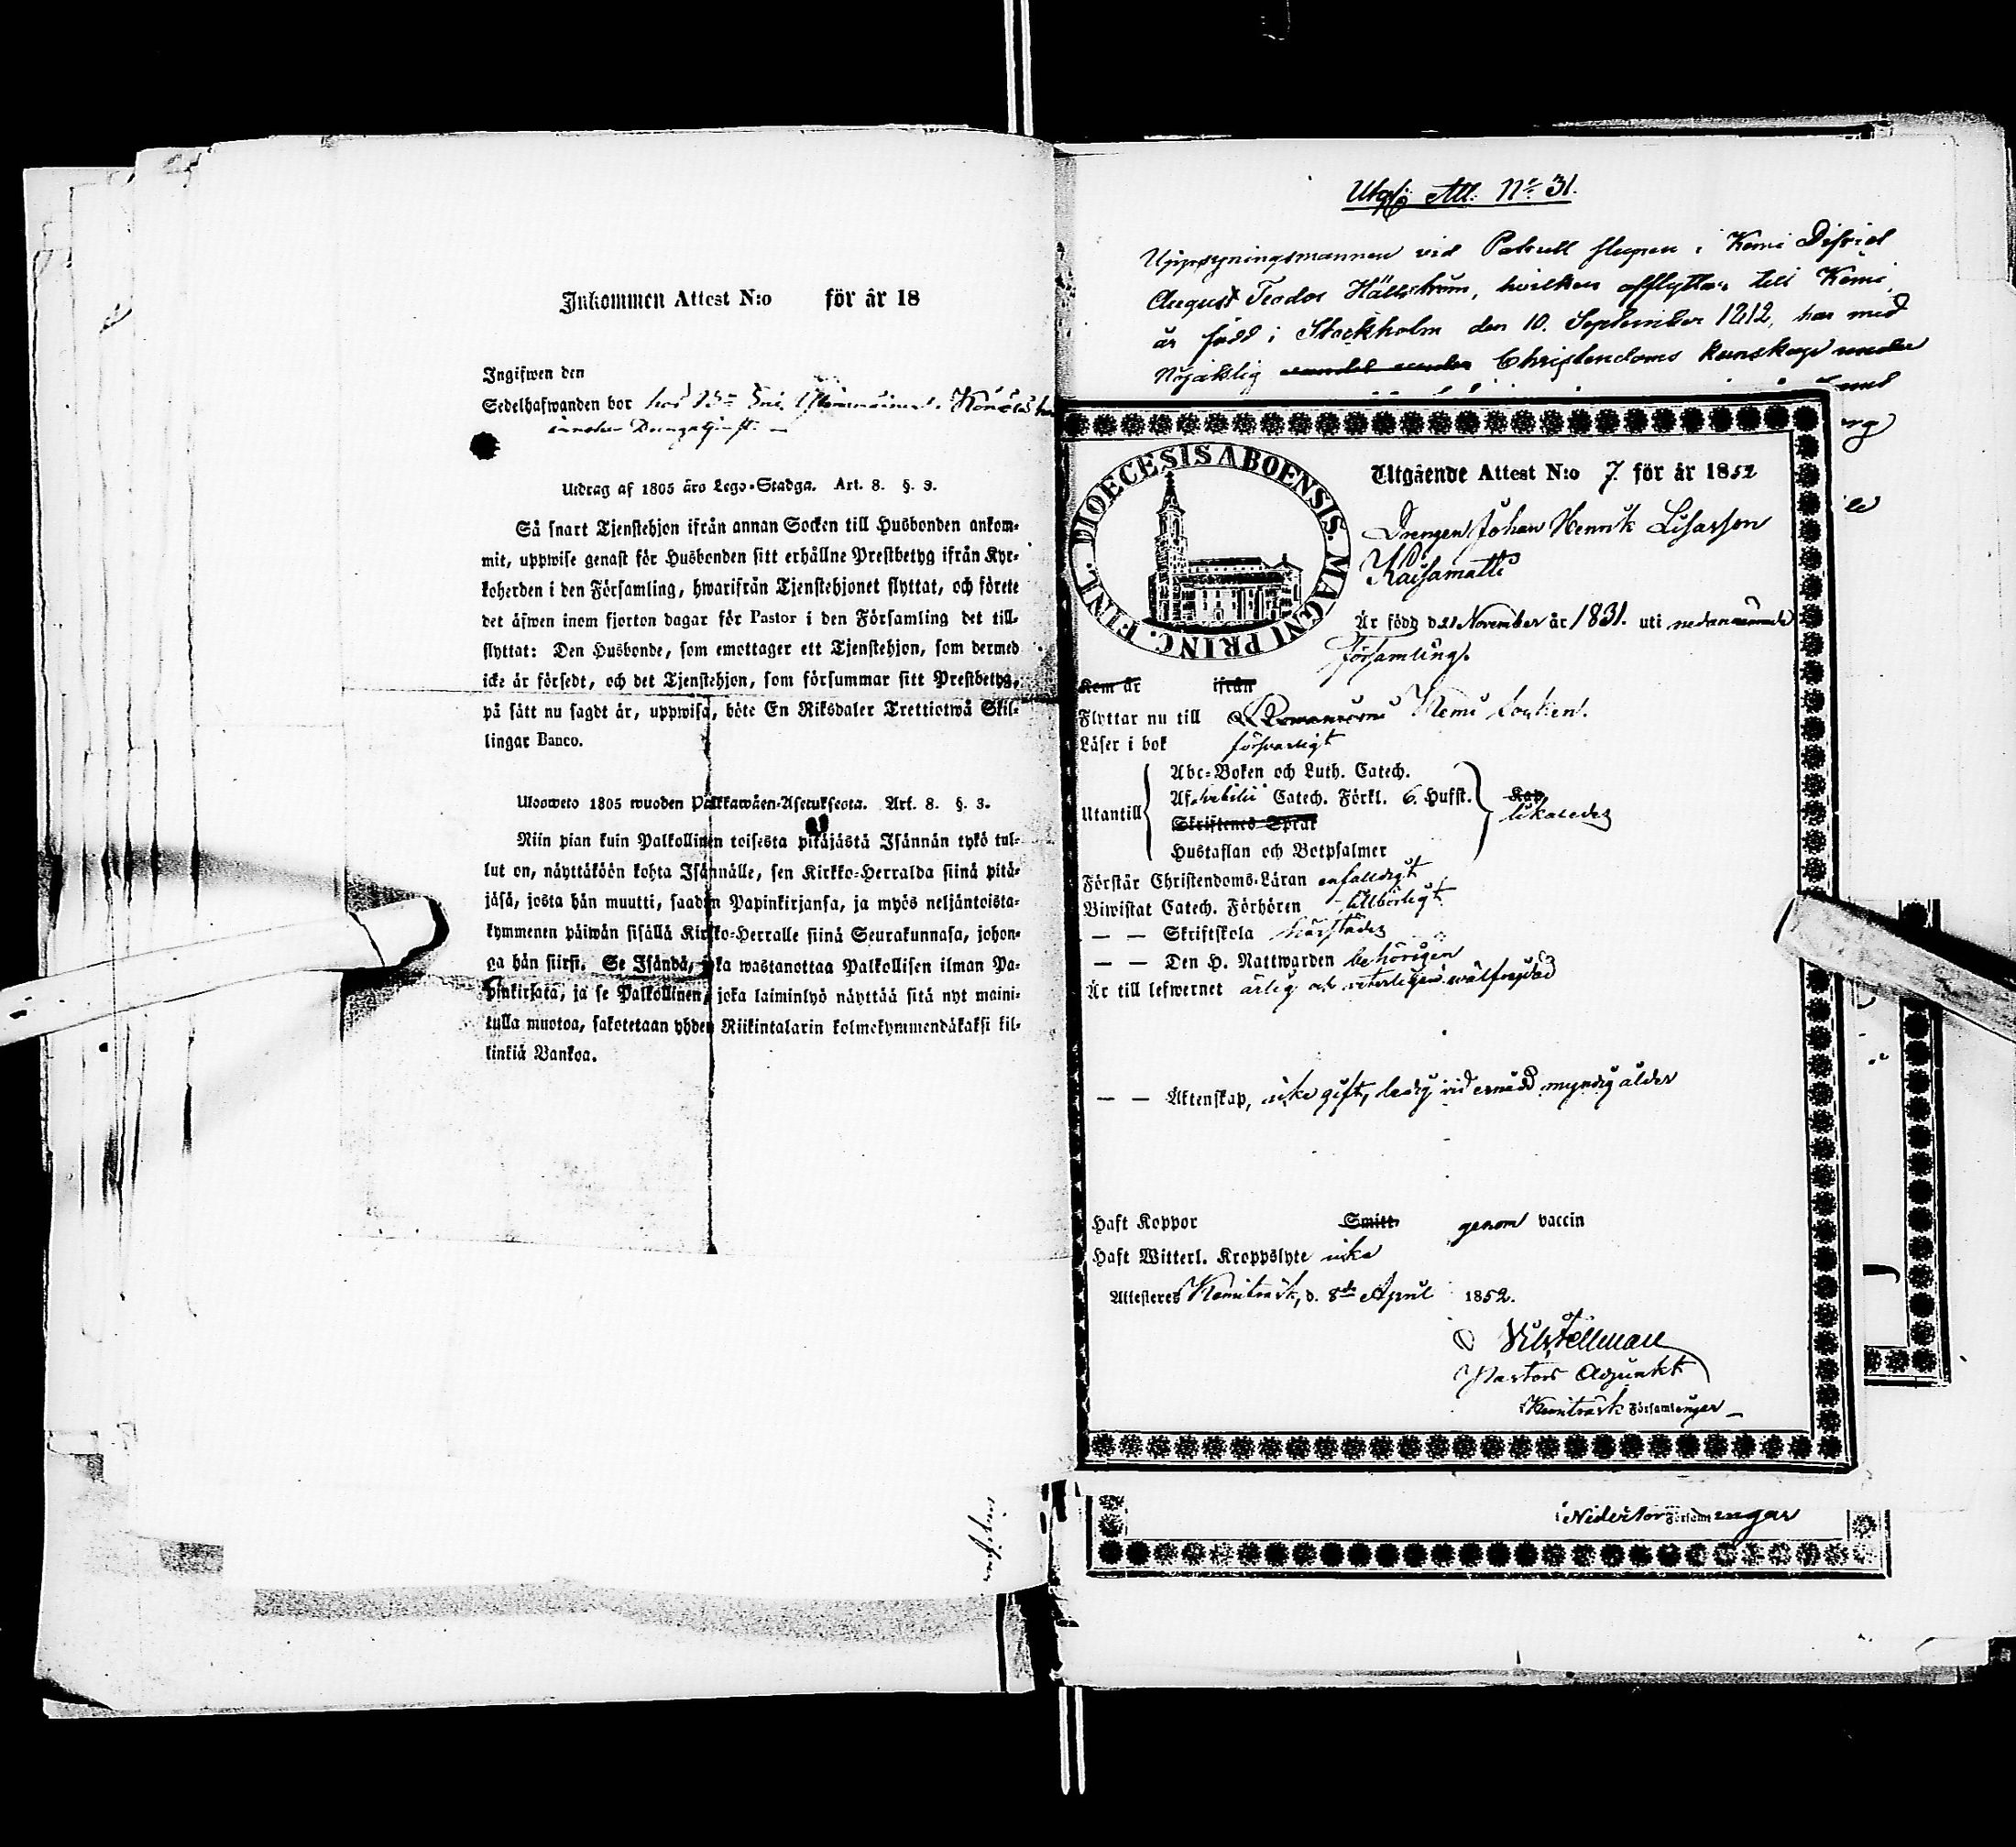 Inkommen Attest N:o för år 18
Ingifwen den
Sedelhafwanden bor hos
Utdrag af 1805 års Lego-Stadga. Art. 8. §. 3.
Så snart Tjenstehjon ifrån annan Socken till Husbonden ankom-
mit, uppwise genast för Husbonden sitt erhållne Prestbetyg ifrån Kyr-
koherden i den Församling, hwarifrån Tjenstehjonet flyttat, och förete
det äfwen inom fjorton dagar för Pastor i den Församling det till-
flyttat: Den Husbonde, som emottager ett Tjenstehjon, som dermed
icke är försedt, och det Tjenstehjon, som försummar sitt Prestbetyg,
på sätt nu sagdt är, uppwisa, böte En Riksdaler Trettiotwå Skil-
lingar Banco.
Ulosweto 1805 wuoden Palkkawäen-Asetuksesta. Art. 8. §. 3.
Niin pian kuin Palkollinen toisesta pitäjästä Isännän tykö tul-
lut on, näyttäköön kohta Isännälle, sen Kirkko-Herralda siinä pitä-
jäsä, josta hän muutti, saadun Papinkirjansa, ja myös neljäntoista-
kymmenen päiwän sisällä Kirkko-Herralle siinä Seurakunnasa, johon-
ga hän siirsi. Se Isändä, joka wastanottaa Palkollisen ilman Pa-
pinkirjata, ja se Palkollinen, joka laiminlyö näyttää sitä nyt maini-
tulla muotoa, sakotetaan yhden Riikintalarin kolmekymmendäkaksi kil-
linkiä Bankoa.
Utgå Att. No 31.
Uppsyningsmannen vid Patrull slupen i Kemi District
August Teodor Hällström, hvilken afflyttar till Kemi,
är född i Stockholm den 10. September 1812, har med
Nöjaktig Christendoms kunskap under
DIOECESIS ABOENSIS. MAGNI PRINC. FINL.
Utgående Attest N:o 7. för år 1852
Drengen Johan Henrik Lisasson
Kaisamatti
Är född d. 21 November år 1831. uti nedannämnde
församling.
Kom år ifrån
Flyttar nu till Kemi Socken.
Läser i bok försvarligt
Abc-Boken och Luth. Catech.
Utantill Af Svebilii Catech. Förkl. 6. Hufst. likaledes
Skriftenes Språk
Hustaflan och Botpsalmer
Förstår Christendoms-Läran enfaldigt
Biwistat Catech. Förhören tillbörligt
— — Skriftskola härstädes
— — Den H. Nattwarden behörigen
Är till lefwernet ärlig och veterligen wälfrejdad
— — Äktenskap, icke gift, ledig vid ernådd myndig ålder
Haft Koppor Smitt genom vaccin
Haft Witterl. Kroppslyte icke
Attesteres Kemiträsk, d. 8de April 1852.
Fellman
Pastors Adjunkt
i Kemiträsk Församlingar
i Nedertor Församlingar